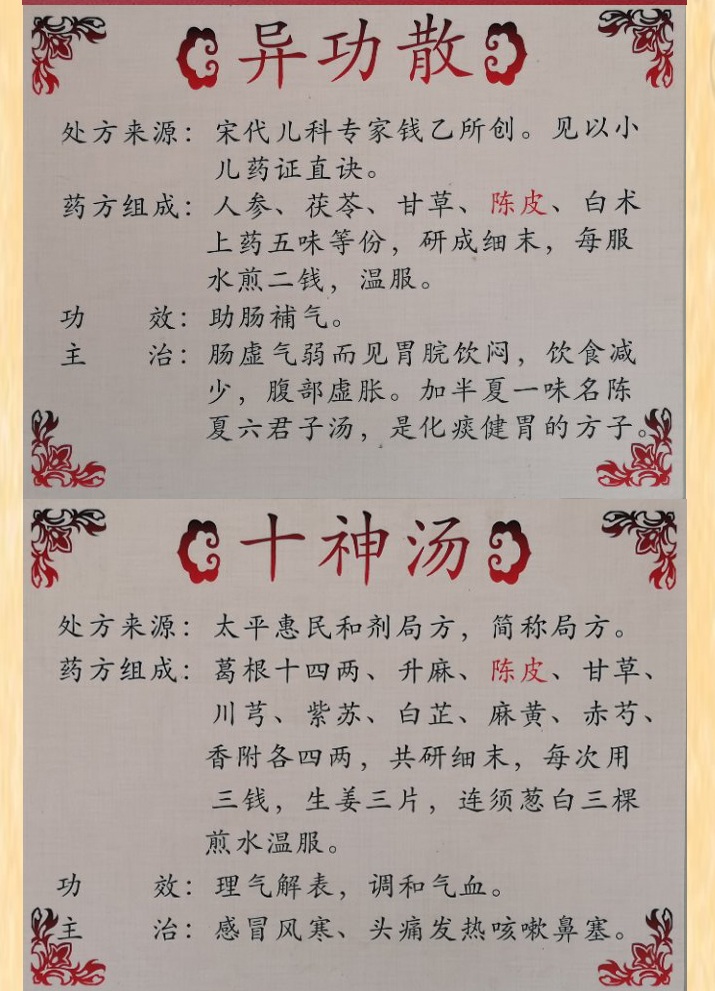 异功散
处方来源：宋代儿科专家钱乙所创。见以小
儿药证直诀。
药方组成：人参、茯苓、甘草、陈皮、白术
上药五味等份，研成细末，每服
水煎二钱，温服。
功　　效：助肠補气。
主　　治：肠虚气弱而见胃脘饮闷，饮食减
少，腹部虚胀。加半夏一味名陈
夏六君子汤，是化痰健胃的方子。
十神汤
处方来源：太平惠民和剂局方，简称局方。
药方组成：葛根十四两、升麻、陈皮、甘草、
川芎、紫苏、白芷、麻黄、赤芍、
香附各四两，共研细末，每次用
三钱，生姜三片，连须葱白三棵
煎水温服。
功　　效：理气解表，调和气血。
主　　治：感冒风寒、头痛发热咳嗽鼻塞。